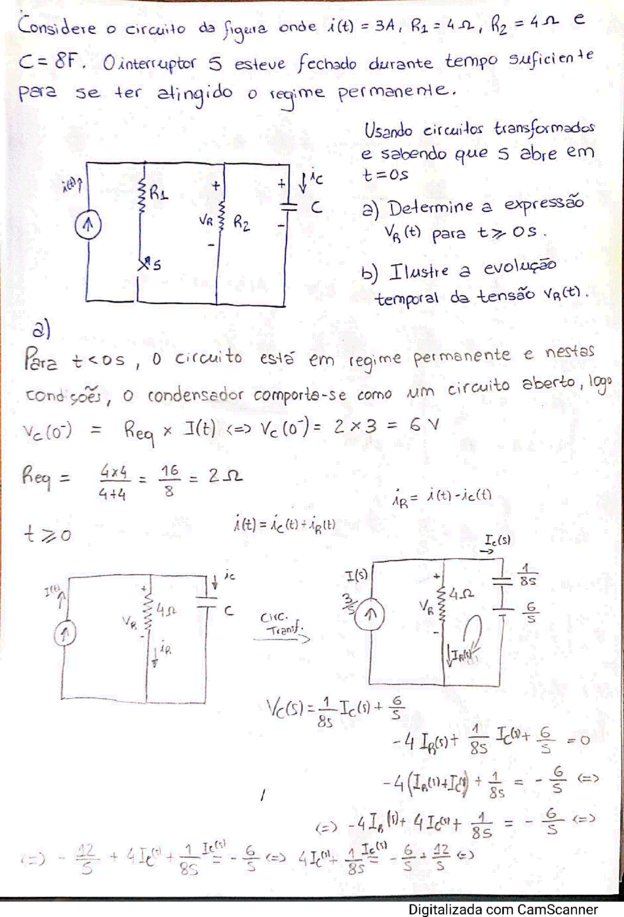 Considere o circuito da figura onde i(t) = 3A, R1 = 4Ω, R2 = 4Ω e
C = 8F. O interruptor S esteve fechado durante tempo suficiente
para se ter atingido o regime permanente.
Usando circuitos transformados
e sabendo que S abre em
t = 0s
a) Determine a expressão
VR(t) para t ≥ 0s.
b) Ilustre a evolução
temporal da tensão VR(t).
i(t)↑
R1
S
+
VR
-
R2
+
-
↓ic
C
a)
Para t<0s, o circuito está em regime permanente e nestas
condições, o condensador comporta-se como um circuito aberto, logo
Vc(0⁻) = Req × I(t) <=> Vc(0⁻) = 2 × 3 = 6 V
Req = 4×4/4+4 = 16/8 = 2Ω
iR = i(t) - ic(t)
t ≥ 0
i(t) = ic(t) + iR(t)
I(t)↑
+
VR
-
4Ω
↓iR
↓ic
C
Circ.
Transf.
I(s)
3/s
+
VR
-
4Ω
↓IR(s)
Ic(s)
1/8s
6/s
Vc(s) = 1/8s Ic(s) + 6/s
-4 IR(s) + 1/8s Ic(s) + 6/s = 0
-4(IR(s)+Ic(s)) + 1/8s = - 6/s <=>
(=) -4IR(s) + 4Ic(s) + 1/8s = - 6/s <=>
(=) - 12/s + 4Ic(s) + 1/8s Ic(s) = - 6/s <=> 4Ic(s) + 1/8s Ic(s) = - 6/s + 12/s (=)
Digitalizada com CamScanner